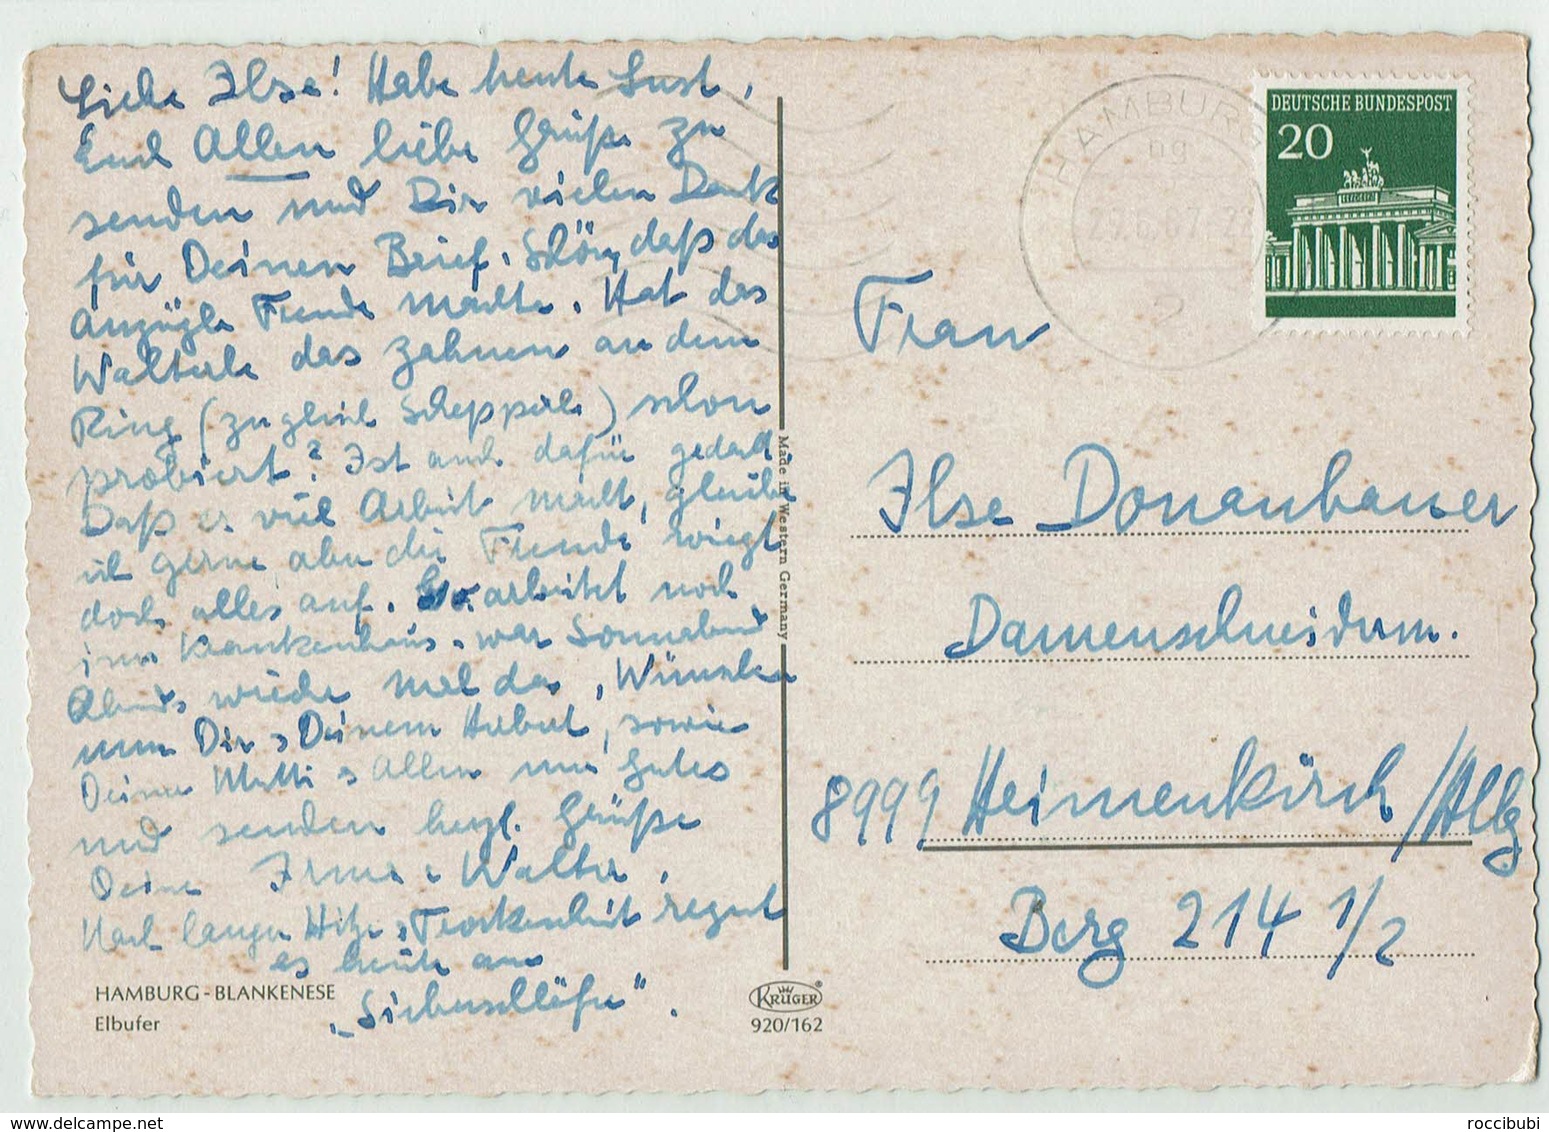 Liebe Ilse! Habe heute Lust,
Euch Allen liebe Grüße zu
senden und Dir vielen Dank
für Deinen Brief. Schön, daß das
Anzügle Freude machte. Hat das
Walterle das zahnen an dem
Ring (zugleich Schepperle) schon
probiert? Ist auch dafür gedacht
Daß es viel Arbeit macht, glaube
ich gerne, aber die Freude wiegt
doch alles auf. arbeitet noch
im Krankenhaus, war Sonnabend
Abends wieder mal da. Wünschen
nun Dir, Deinem Hubert, sowie
Deiner Mutti, Allen nur Gutes
und senden herzl. Grüße
Deine Irma & Walter.
Nach langer Hitze, Trockenheit regnet
es heute am
„Siebenschläfer".
HAMBURG-BLANKENESE
Elbufer
Made in Western Germany
KRÜGER
920/162
HAMBURG
29.6.67-22
2
DEUTSCHE BUNDESPOST
20
Frau
Ilse Donaubauer
Damenschneiderm.
8999 Heimenkirch/Allg
Berg 214 1/2
roccibubi